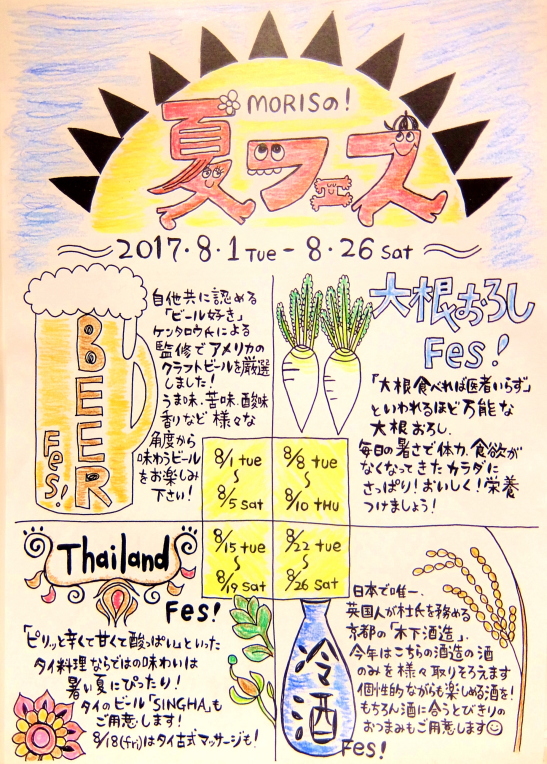 MORISの!
夏フェス
2017・8・1 Tue - 8・26 Sat
BEER
Fes!
自他共に認める
「ビール好き」
ケンタロウ氏による
監修でアメリカの
クラフトビールを厳選
しました!
うま味、苦味、酸味
香りなど様々な
角度から
味わうビール
をお楽しみ
下さい!
大根おろし
Fes!
「大根食べれば医者いらず」
といわれるほど万能な
大根おろし.
毎日の暑さで体力、食欲が
なくなってきたカラダに
さっぱり!おいしく!栄養
つけましょう!
8/1 tue
~
8/5 sat
8/8 tue
~
8/10 tHu
8/15 tue
~
8/19 sat
8/22 tue
~
8/26 sat
Thailand
Fes!
「ピリッと辛くて甘くて酸っぱい」といった
タイ料理ならではの味わいは
暑い夏にぴったり!
タイのビール「SINGHA」も
ご用意します!
8/18(fri)はタイ古式マッサージも!
日本で唯一、
英国人が杜氏を務める
京都の「木下酒造」.
今年はこちらの酒造の酒
のみを様々取りそろえます
個性的ながらも楽しめる酒を!
もちろん酒に合うとびきりの
おつまみもご用意します
冷酒
Fes!